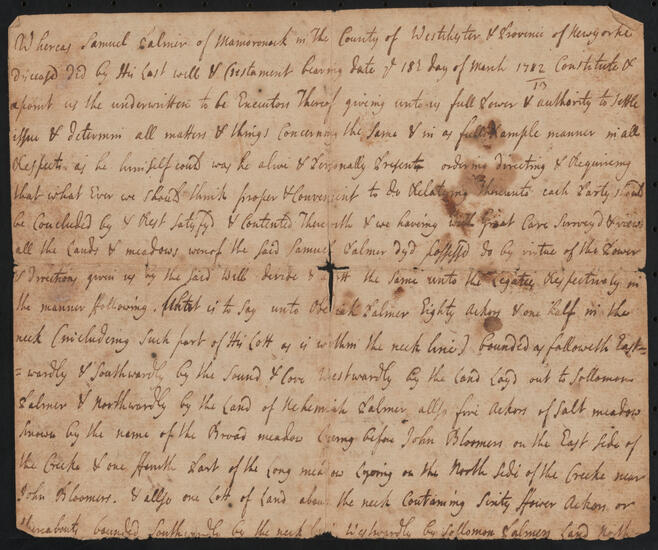 Whereas Samuel Palmer of Mamoroneck in the County of Westchyter & Provence of Newyorke
Diceased Did by His Last will & Testament bearing date ye 18: day of March 1782 Constitute &
apoint us the underwritten to be Executors Thereof giving unto us full Power & authority to Settle
issue & determin all matters & things Concerning the Same & in as full & ample manner in all
Respects as he himself coud was he alive & Personally Present ordering directing & Requireing
that what Ever we should think proper & Convenient to do Relateing Thereunto each Party should
be Concluded by & Rest Satisfyd & Contented Therewith & we having with Great Care Surveyd & view
all the Lands & meadows whereof the said Samuel Palmer dyd possessed do by virtue of the Power
& directions given us by the said will devide & the same unto the Legatees Respectively in
the manner following. that is to say unto Obediah Palmer Eighty Ackors & one half in the
neck (including Such part of His Lott as is within the neck line) bounded as followeth East-
=wardly & Southwardly by the Sound & Cove Westwardly by the Land Layd out to Sollomon
Palmer & Northwardly by the Land of Nehemiah Palmer, allso five Ackors of Salt meadow
known by the name of the Broad meadow Lyeing before John Bloomers on the East side of
the Creeke & one Part of the Long meadow Lyeing on the North side of the Creeke near
John Bloomers. & allso one Lott of Land above the neck Containing Sixty Ackors or
thereabouts bounded Southwardly by the neck line Westwardly by Sollomon Palmers Land North